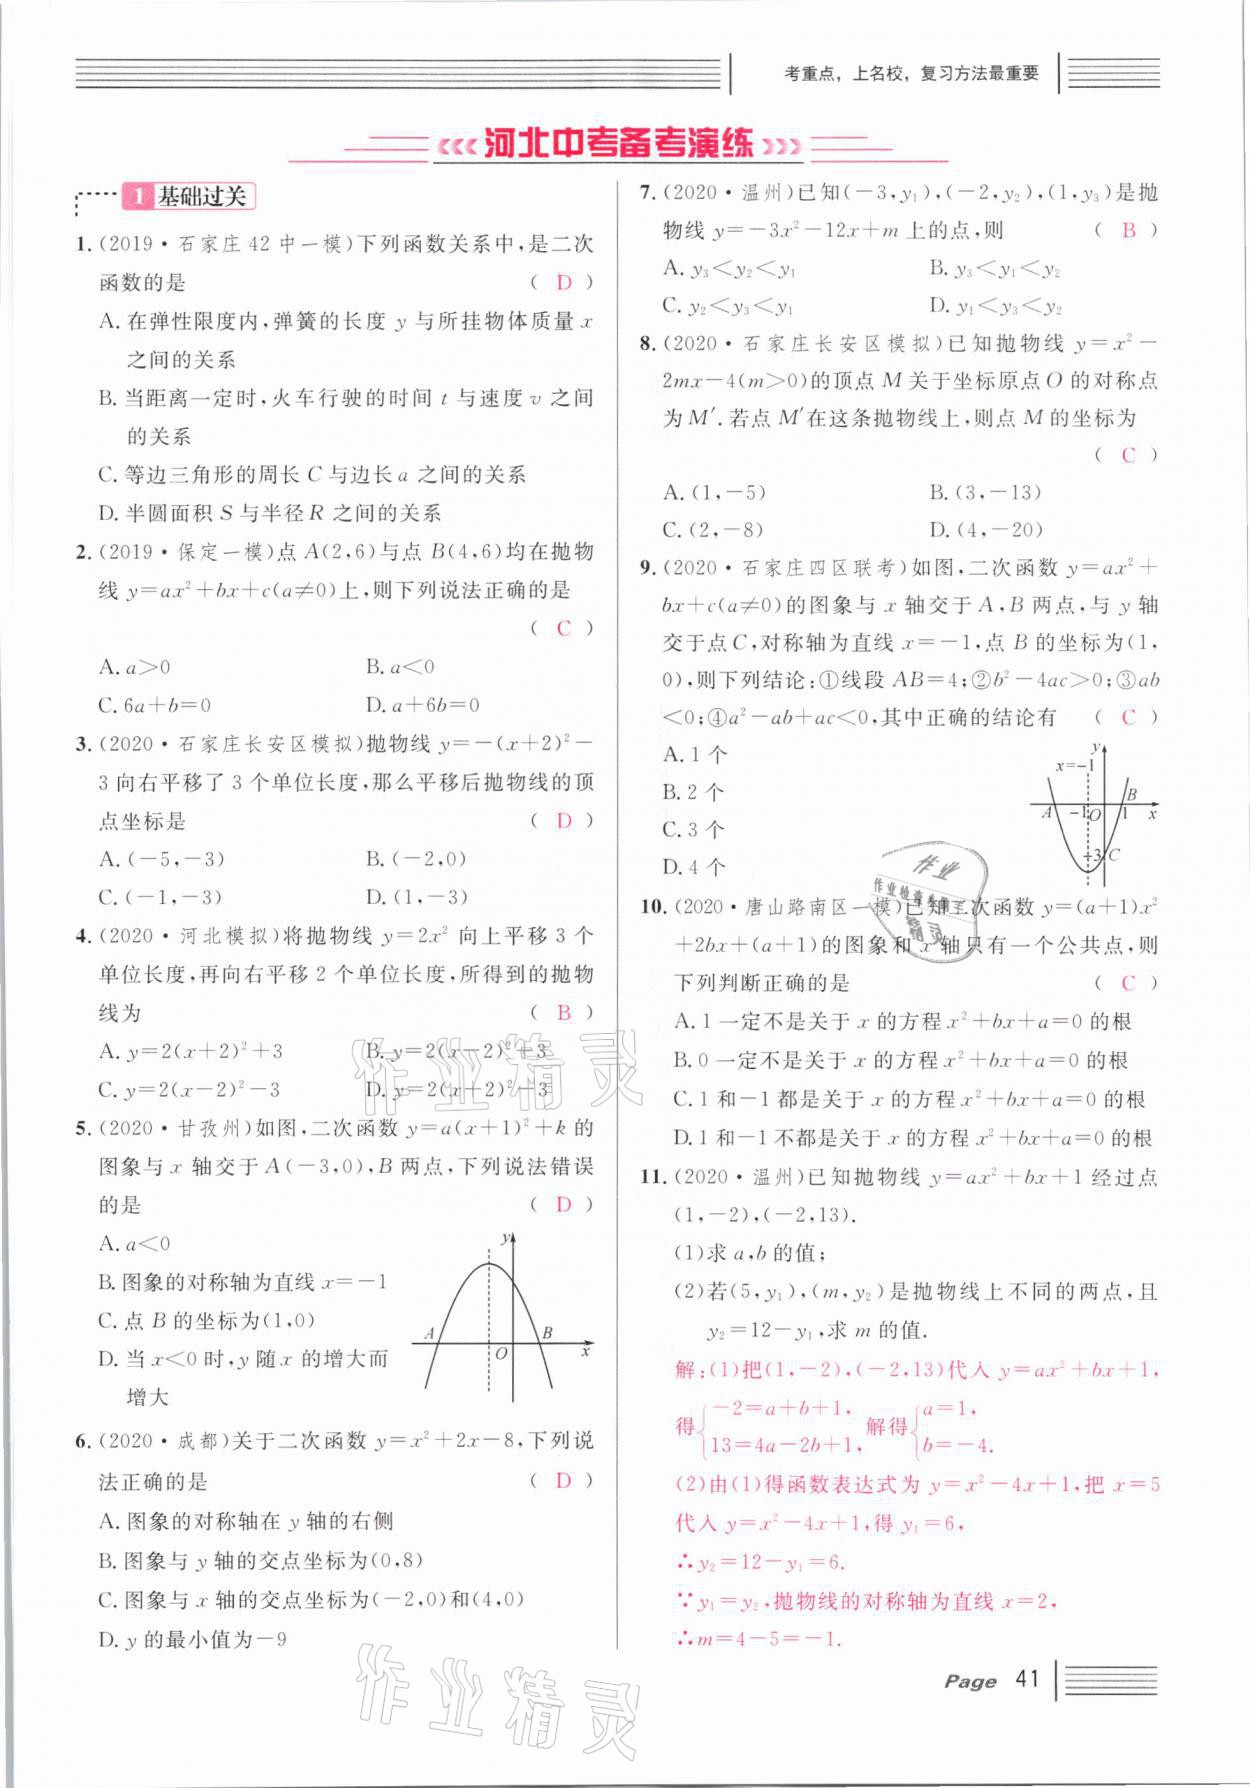 考重点，上名校，复习方法最重要
河北中考备考演练
1 基础过关
1. (2019·石家庄 42 中一模)下列函数关系中,是二次
函数的是 ( D )
A. 在弹性限度内,弹簧的长度 y 与所挂物体质量 x
之间的关系
B. 当距离一定时,火车行驶的时间 t 与速度 v 之间
的关系
C. 等边三角形的周长 C 与边长 a 之间的关系
D. 半圆面积 S 与半径 R 之间的关系
2. (2019·保定一模)点 A(2,6)与点 B(4,6)均在抛物
线 y=ax²+bx+c(a≠0)上,则下列说法正确的是
( C )
A. a>0 B. a<0
C. 6a+b=0 D. a+6b=0
3. (2020·石家庄长安区模拟)抛物线 y=-(x+2)²-
3 向右平移了 3 个单位长度,那么平移后抛物线的顶
点坐标是 ( D )
A. (-5,-3) B. (-2,0)
C. (-1,-3) D. (1,-3)
4. (2020·河北模拟)将抛物线 y=2x² 向上平移 3 个
单位长度,再向右平移 2 个单位长度,所得到的抛物
线为 ( B )
A. y=2(x+2)²+3 B. y=2(x-2)²+3
C. y=2(x-2)²-3 D. y=2(x+2)²-3
5. (2020·甘孜州)如图,二次函数 y=a(x+1)²+k 的
图象与 x 轴交于 A(-3,0),B 两点,下列说法错误
的是 ( D )
A. a<0
B. 图象的对称轴为直线 x=-1
C. 点 B 的坐标为(1,0)
D. 当 x<0 时,y 随 x 的增大而
增大
y
A
O
B
x
6. (2020·成都)关于二次函数 y=x²+2x-8,下列说
法正确的是 ( D )
A. 图象的对称轴在 y 轴的右侧
B. 图象与 y 轴的交点坐标为(0,8)
C. 图象与 x 轴的交点坐标为(-2,0)和(4,0)
D. y 的最小值为-9
7. (2020·温州)已知(-3,y₁),(-2,y₂),(1,y₃)是抛
物线 y=-3x²-12x+m 上的点,则 ( B )
A. y₃<y₂<y₁ B. y₃<y₁<y₂
C. y₂<y₃<y₁ D. y₁<y₃<y₂
8. (2020·石家庄长安区模拟)已知抛物线 y=x²-
2mx-4(m>0)的顶点 M 关于坐标原点 O 的对称点
为 M′.若点 M′在这条抛物线上,则点 M 的坐标为
( C )
A. (1,-5) B. (3,-13)
C. (2,-8) D. (4,-20)
9. (2020·石家庄四区联考)如图,二次函数 y=ax²+
bx+c(a≠0)的图象与 x 轴交于 A,B 两点,与 y 轴
交于点 C,对称轴为直线 x=-1,点 B 的坐标为(1,
0),则下列结论:①线段 AB=4;②b²-4ac>0;③ab
<0;④a²-ab+ac<0,其中正确的结论有 ( C )
A. 1 个
B. 2 个
C. 3 个
D. 4 个
y
x=-1
A
-1
O
1
B
x
-3
C
10. (2020·唐山路南区一模)已知二次函数 y=(a+1)x²
+2bx+(a+1)的图象和 x 轴只有一个公共点,则
下列判断正确的是 ( C )
A. 1 一定不是关于 x 的方程 x²+bx+a=0 的根
B. 0 一定不是关于 x 的方程 x²+bx+a=0 的根
C. 1 和-1 都是关于 x 的方程 x²+bx+a=0 的根
D. 1 和-1 不都是关于 x 的方程 x²+bx+a=0 的根
11. (2020·温州)已知抛物线 y=ax²+bx+1 经过点
(1,-2),(-2,13).
(1)求 a,b 的值;
(2)若(5,y₁),(m,y₂)是抛物线上不同的两点,且
y₂=12-y₁,求 m 的值.
解:(1)把(1,-2),(-2,13)代入 y=ax²+bx+1,
得{-2=a+b+1, 13=4a-2b+1, 解得{a=1, b=-4.
(2)由(1)得函数表达式为 y=x²-4x+1,把 x=5
代入 y=x²-4x+1,得 y₁=6,
∴y₂=12-y₁=6.
∵y₁=y₂,抛物线的对称轴为直线 x=2,
∴m=4-5=-1.
作业精灵
作业精灵
作业
Page 41